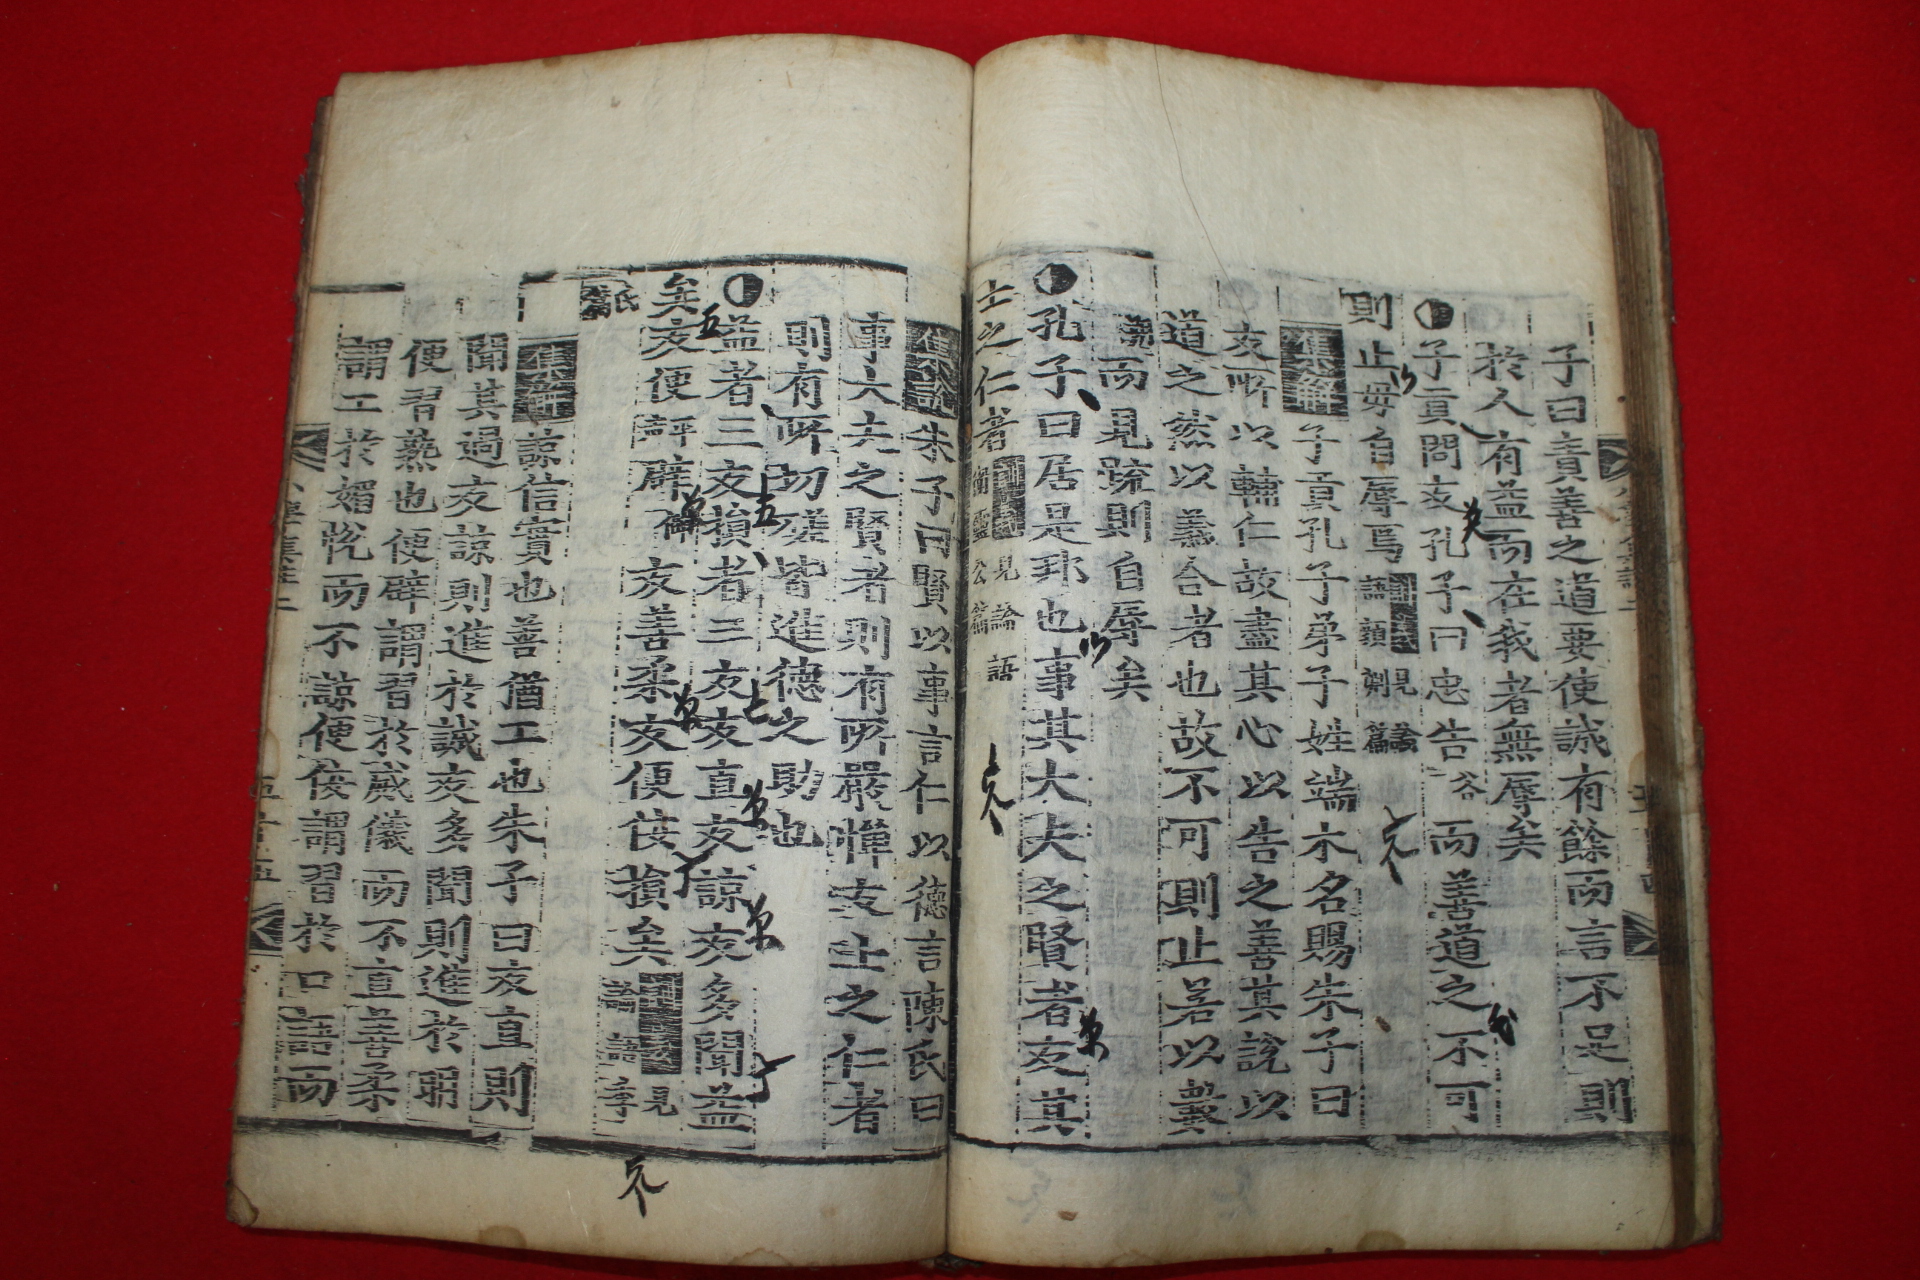 子曰責善之道要使誠有餘而言不足則
於人有益而在我者無辱矣
子貢問友孔子曰忠告谷而善道之不可
則止毋自辱焉
語顔淵篇
見論
集解子貢孔子弟子姓端木名賜朱子曰
友所以輔仁故盡其心以告之善其說以
道之然以義合者也故不可則止若以數
朔而見疏則自辱矣
孔子曰居是邦也事其大夫之賢者友其
士之仁者
見論語
衛靈公篇
集說朱子曰賢以事言仁以德言陳氏曰
事大夫之賢者則有所嚴憚友士之仁者
則有所切磋皆進德之助也
益者三友損者三友友直友諒友多聞益
矣友便評辟婢友善柔友便佞損矣
見
論語季
氏篇
集解諒信實也善猶工也朱子曰友直則
聞其過友諒則進於誠友多聞則進於明
便習熟也便辟謂習於威儀而不直善柔
謂工於媚悅而不諒便佞謂習於口語而